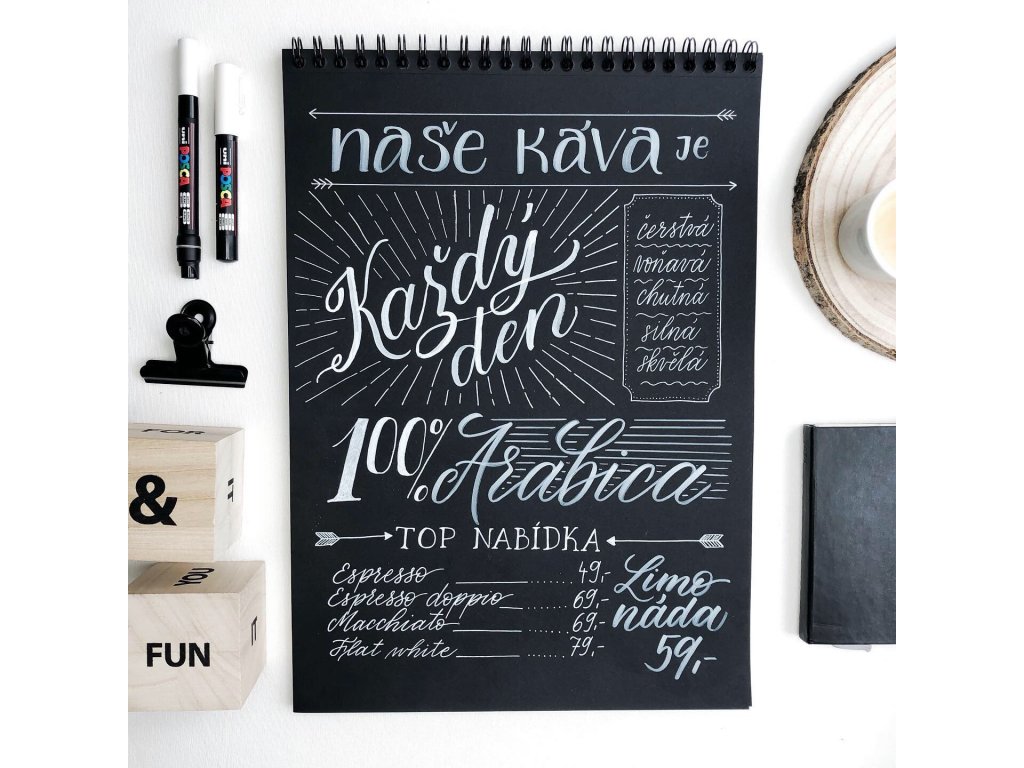 naše káva je
Každý
den
čerstvá
voňavá
chutná
silná
skvělá
100% Arabica
TOP NABÍDKA
Espresso 49,-
Espresso doppio 69,-
Macchiato 69,-
Flat white 79,-
Limo
náda
59,-
uni POSCA
uni POSCA
FOR
&
YOU
FUN
IT